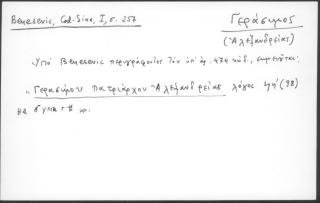 Benešević, Cod. Sin., I, σ. 257
Γεράσιμος
(Ἀλεξανδρείας)
Ὑπὸ Benešević περιγράφεται τὸν ὑπ' ἀρ. 474 κώδ., σημειοῦται:
"Γερασίμου πατριάρχου Ἀλεξανδρείας λόγος ϟη' (98)